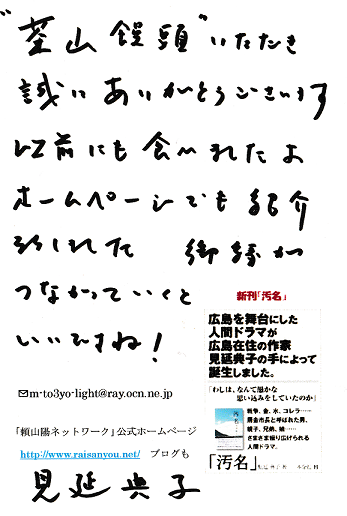 "茶山饅頭"いただき
誠にありがとうございます
以前にも食べれたよ
ホームページでも紹介
された 御縁が
つながっていくと
いいですね!
新刊「汚名」
広島を舞台にした
人間ドラマが
広島在住の作家
見延典子の手によって
誕生しました。
「わしは、なんて愚かな
思い込みをしていたのか」
戦争、金、水、コレラ……
賄金市長と呼ばれた男、
親子、兄弟、姉……
さまざま織り広げられる
人間ドラマ。
「汚名」
m-to3yo-light@ray.ocn.ne.jp
「頼山陽ネットワーク」公式ホームページ
http://www.raisanyou.net/ ブログも
見延典子